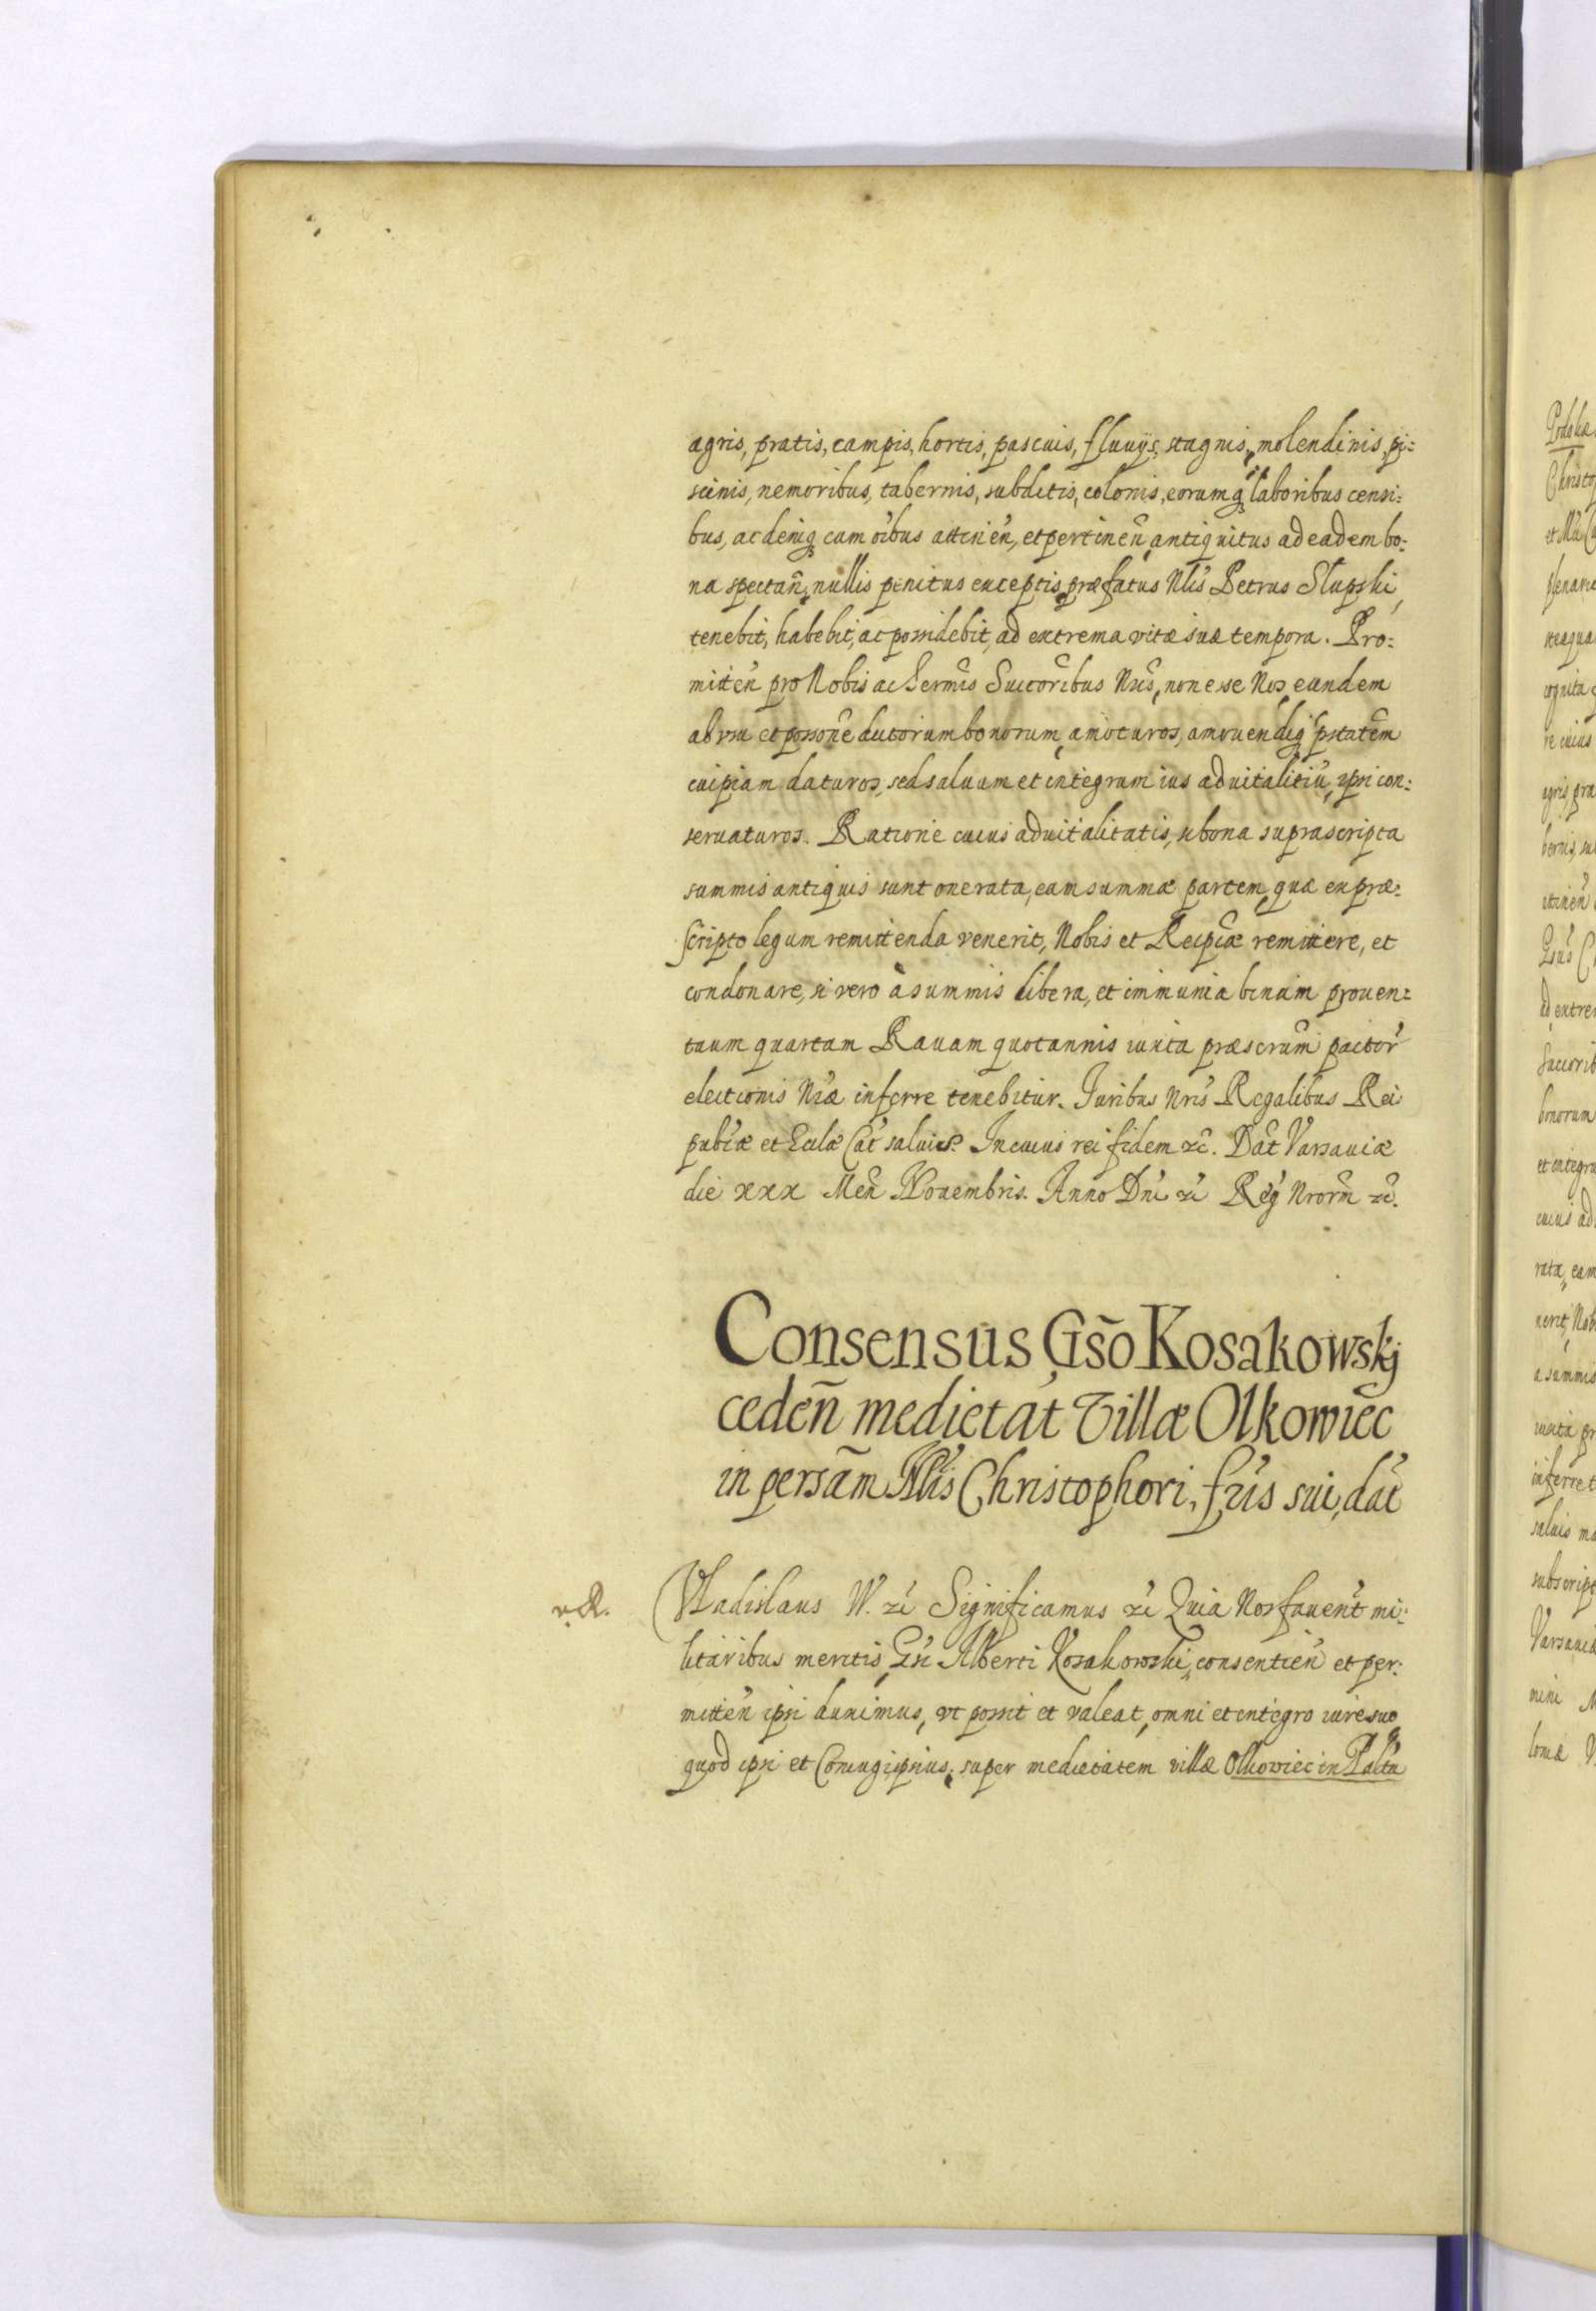 agris, pratis, campis, hortis, pascuis, fluuijs, stagnis, molendinis, pi:
scinis, nemoribus, tabernis, subditis, colonis, eorumq laboribus censi:
bus, ac deniq cum oibus attinen, et pertinen antiquitus ad eadem bo:
na spectan, nullis penitus exceptis, præfatus Nlis Petrus Słupski,
tenebit, habebit, ac possidebit, ad extrema vitæ suæ tempora. Pro:
mitten pro Nobis ac Sermis Succoribus Nris, non esse Nos eundem
ab vsu et possone dictorum bonorum amoturos, amouendiq ptatem
cuipiam daturos, sed saluum et integrum ius aduitalitiu, ipsi con:
seruaturos. Ratione cuius aduitalitatis, si bona suprascripta
summis antiquis sunt onerata, eam summæ partem quæ ex præ:
scripto legum remittenda venerit, Nobis et Reipcæ remittere, et
condonare, si vero à summis libera, et immunia binam prouen:
tuum quartam Rauam quotannis iuxta præscrum pactor
electionis Nræ inferre tenebitur. Iuribus Nris Regalibus Rei
publæ et Eclæ Cat saluis. In cuius rei fidem &c. Dat Varsauiæ
die xxx Men Nouembris. Anno Dni &c Reg Nrorm &c.
Consensus Gso Kosakowskj
ceden medietat Villæ Olkowiec
in persam Nlis Christophori, fris sui, dat
Vladislaus IV. &c Significamus &c Quia Nos fauent mi:
litaribus meritis Gsi Alberti Kosakowski, consentien et per:
mitten ipsi duximus, vt possit et valeat, omni et integro iure suo
quod ipsi et Coniugi ipsius, super medietatem villæ Olkowiec in Paltu